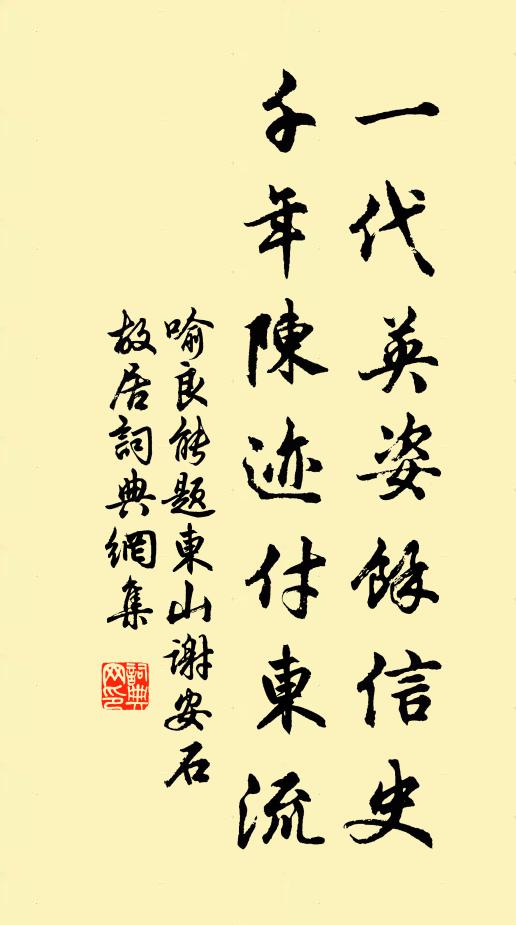 一代英姿餘信史
千年陳迹付東流
喻良能題東山謝安石
故居詞典網集
詞典
网印